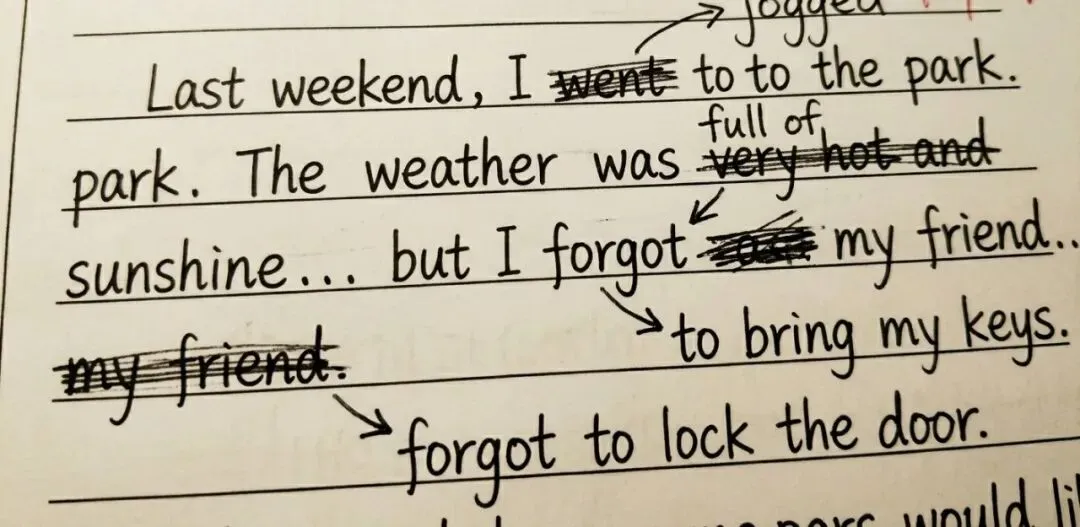 jogged
Last weekend, I went to to the park.
full of
park. The weather was very hot and
sunshine... but I forgot my friend..
to bring my keys.
my friend.
forgot to lock the door.
would